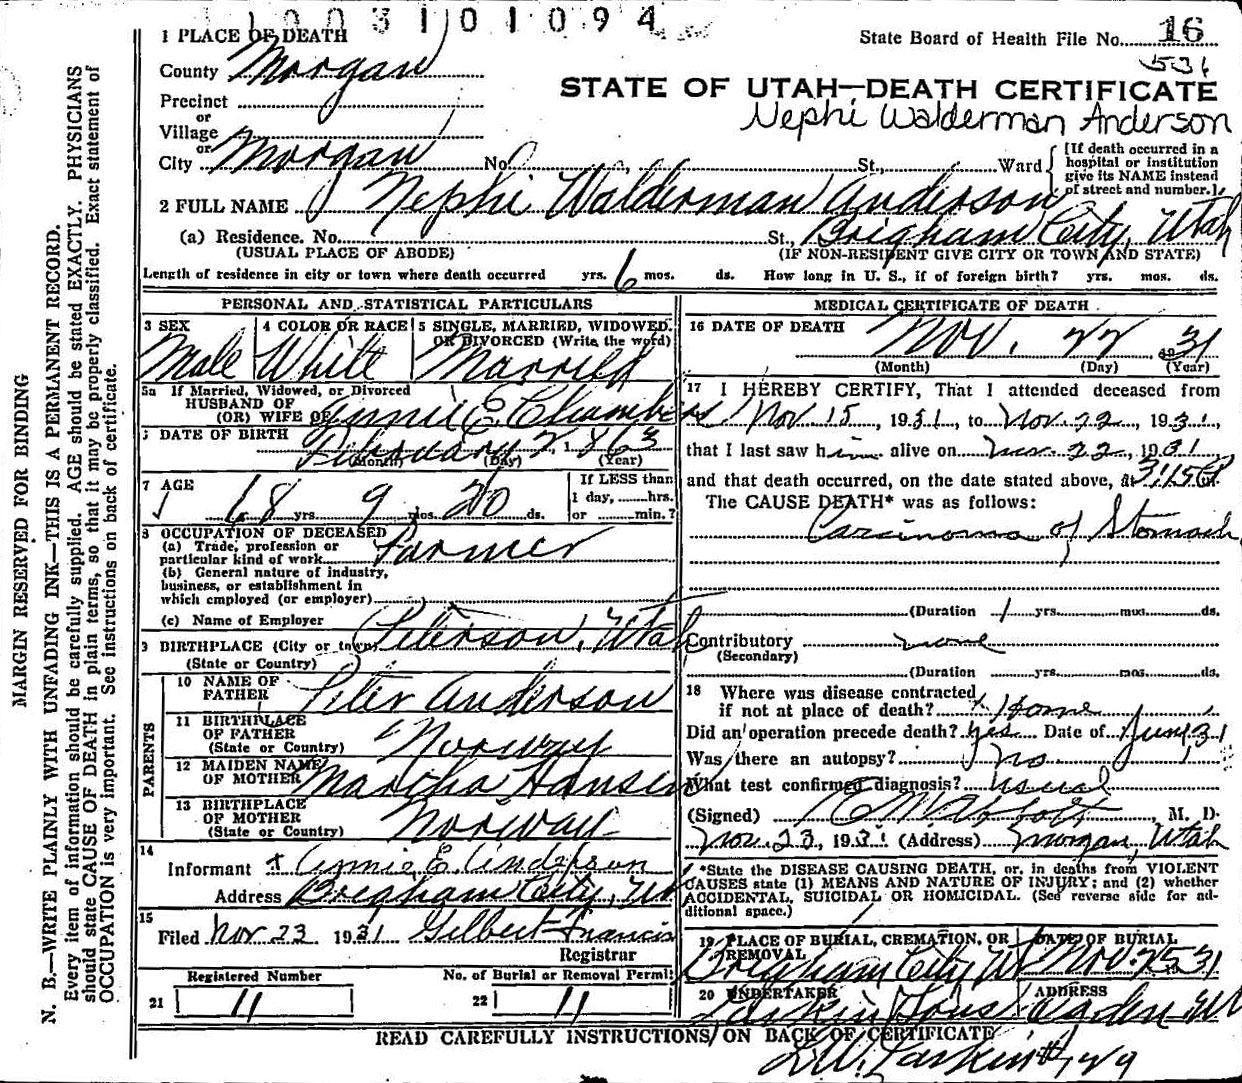 1003101094
1 PLACE OF DEATH
State Board of Health File No. 16
531
County Morgan
STATE OF UTAH—DEATH CERTIFICATE
Precinct
Nephi Walderman Anderson
or
Village
or
City Morgan No. St., Ward
[If death occurred in a
hospital or institution
give its NAME instead
of street and number.]
2 FULL NAME Nephi Walderman Anderson
(a) Residence. No. St., Brigham City, Utah
(USUAL PLACE OF ABODE) (IF NON-RESIDENT GIVE CITY OR TOWN AND STATE)
Length of residence in city or town where death occurred yrs. 6 mos. ds. How long in U. S., if of foreign birth? yrs. mos. ds.
PERSONAL AND STATISTICAL PARTICULARS
3 SEX 4 COLOR OR RACE 5 SINGLE, MARRIED, WIDOWED,
OR DIVORCED (Write the word)
Male White Married
5a If Married, Widowed, or Divorced
HUSBAND OF
(OR) WIFE OF Annie E. Chambers
6 DATE OF BIRTH February 2, 1863
(Month) (Day) (Year)
7 AGE 68 yrs. 9 mos. 20 ds.
If LESS than
1 day, hrs.
or min.?
8 OCCUPATION OF DECEASED
(a) Trade, profession or
particular kind of work Farmer
(b) General nature of industry,
business, or establishment in
which employed (or employer)
(c) Name of Employer
9 BIRTHPLACE (City or town) Peterson, Utah
(State or Country)
PARENTS
10 NAME OF
FATHER Peter Anderson
11 BIRTHPLACE
OF FATHER Norway
(State or Country)
12 MAIDEN NAME
OF MOTHER Martha Hansen
13 BIRTHPLACE
OF MOTHER Norway
(State or Country)
14
Informant x Annie E. Anderson
Address Brigham City, Ut
15
Filed Nov 23 1931 Gilbert Francis
Registrar
Registered Number No. of Burial or Removal Permit
21 11 22 11
MEDICAL CERTIFICATE OF DEATH
16 DATE OF DEATH Nov. 22 1931
(Month) (Day) (Year)
17 I HEREBY CERTIFY, That I attended deceased from
Nov 15, 1931, to Nov. 22, 1931,
that I last saw him alive on Nov. 22, 1931
and that death occurred, on the date stated above, at 3:15 P m.
The CAUSE DEATH* was as follows:
Carcinoma of Stomach
(Duration 1 yrs. mos. ds.
Contributory none
(Secondary)
(Duration yrs. mos. ds.
18 Where was disease contracted
if not at place of death? Home
Did an operation precede death? yes Date of June, 31
Was there an autopsy? no
What test confirmed diagnosis? usual
(Signed) , M. D.
Nov. 23, 1931 (Address) Morgan, Utah
*State the DISEASE CAUSING DEATH, or, in deaths from VIOLENT
CAUSES state (1) MEANS AND NATURE OF INJURY; and (2) whether
ACCIDENTAL, SUICIDAL OR HOMICIDAL. (See reverse side for ad-
ditional space.)
19 PLACE OF BURIAL, CREMATION, OR
REMOVAL
Brigham City Ut
DATE OF BURIAL
Nov. 25 31
20 UNDERTAKER
Larkin Sons
ADDRESS
Ogden Ut
READ CAREFULLY INSTRUCTIONS ON BACK OF CERTIFICATE
Larkin #729
MARGIN RESERVED FOR BINDING
N. B.—WRITE PLAINLY WITH UNFADING INK—THIS IS A PERMANENT RECORD.
Every item of information should be carefully supplied. AGE should be stated EXACTLY. PHYSICIANS
should state CAUSE OF DEATH in plain terms, so that it may be properly classified. Exact statement of
OCCUPATION is very important. See instructions on back of certificate.